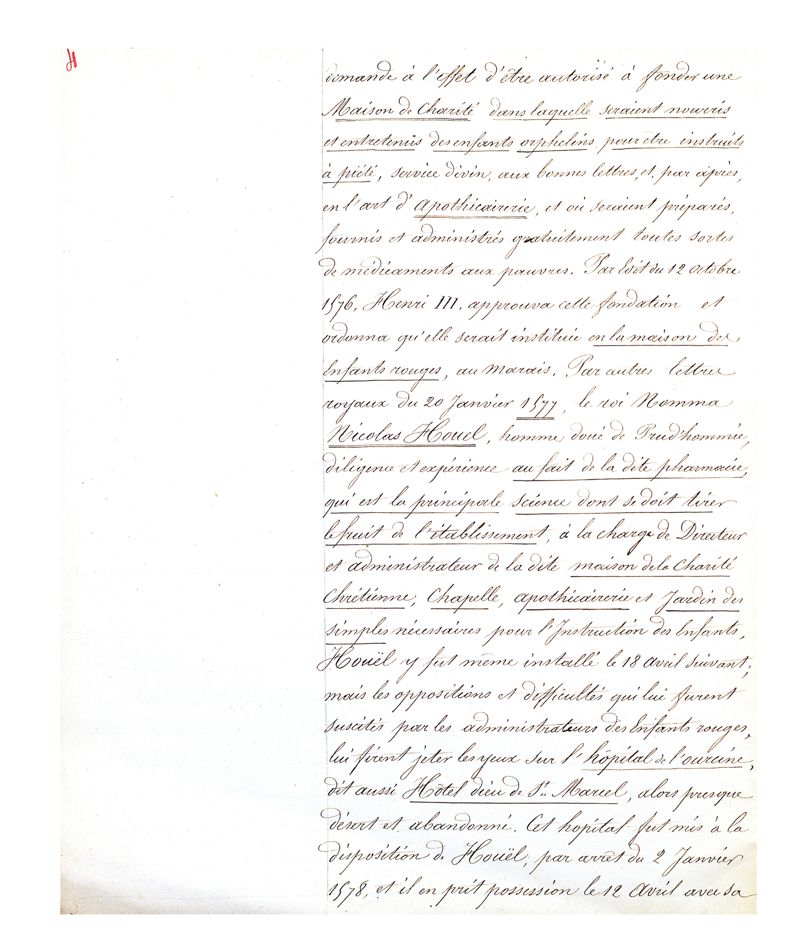 demande à l'effet d'être autorisé à fonder une
Maison de Charité dans laquelle seraient nourris
et entretenus des enfants orphelins, pour être instruits
à piété, service divin, aux bonnes lettres, et, par après,
en l'art d'Apothicairerie, et où seraient préparés,
fournis et administrés gratuitement toutes sortes
de médicaments aux pauvres. Par Edit du 12 octobre
1576, Henri III. approuva cette fondation et
ordonna qu'elle serait instituée en la maison des
Enfants rouges, au Marais. Par autres lettres
royaux du 20 Janvier 1577, le roi Nomma
Nicolas Houel, homme doué de Prud'hommie,
diligence et expérience au fait de la dite pharmacie,
qui est la principale science dont se doit tirer
le fruit de l'établissement, à la charge de Directeur
et administrateur de la dite maison de la Charité
Chrétienne, Chapelle, apothicairerie et Jardin des
simples nécessaires pour l'Instruction des Enfants.
Houël y fut même installé le 18 avril suivant;
mais les oppositions et difficultés qui lui furent
suscités par les administrateurs des Enfants rouges,
lui firent jeter les yeux sur l'hôpital de l'ourcine,
dit aussi Hôtel dieu de St. Marcel, alors presque
désert et abandonné. Cet hopital fut mis à la
disposition de Houël, par arret du 2 Janvier
1578, et il en prit possession le 12 Avril avec sa